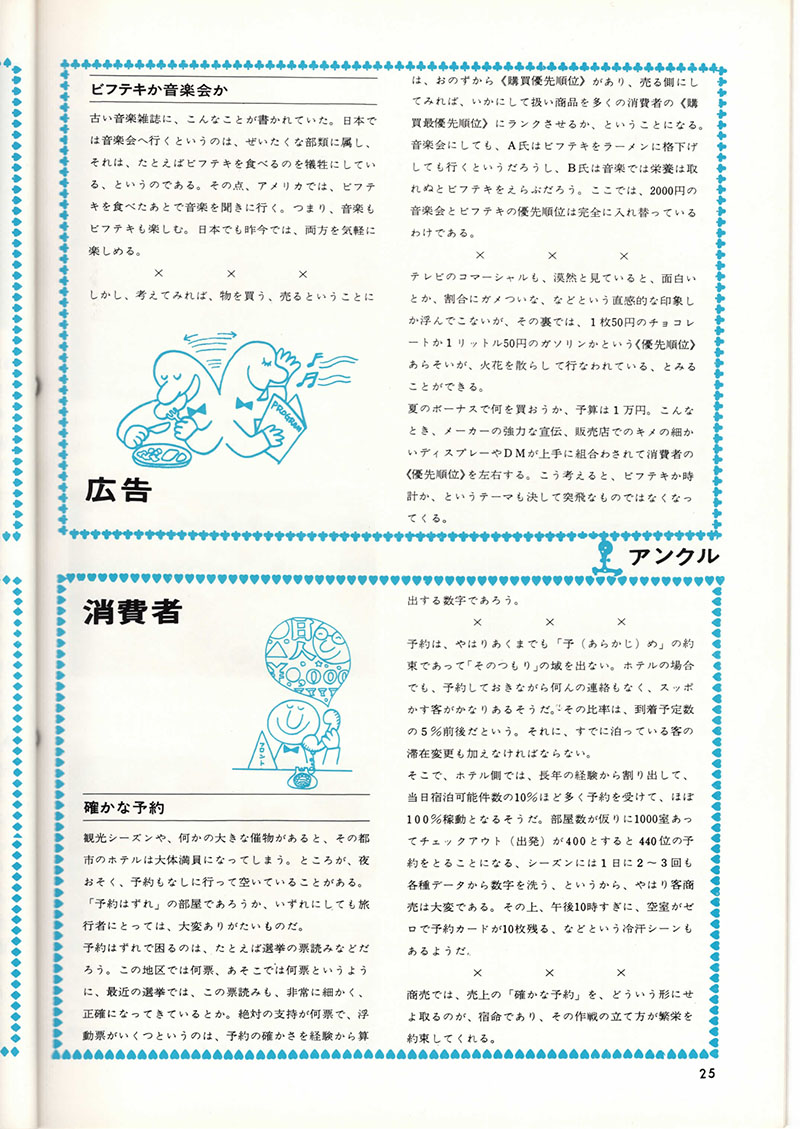 ビフテキか音楽会か
古い音楽雑誌に、こんなことが書かれていた。日本で
は音楽会へ行くというのは、ぜいたくな部類に属し、
それは、たとえばビフテキを食べるのを犠牲にしてい
る、というのである。その点、アメリカでは、ビフテ
キを食べたあとで音楽を聞きに行く。つまり、音楽も
ビフテキも楽しむ。日本でも昨今では、両方を気軽に
楽しめる。
× × ×
しかし、考えてみれば、物を買う、売るということに
PROGRAM
広告
は、おのずから《購買優先順位》があり、売る側にし
てみれば、いかにして扱い商品を多くの消費者の《購
買最優先順位》にランクさせるか、ということになる。
音楽会にしても、A氏はビフテキをラーメンに格下げ
しても行くというだろうし、B氏は音楽では栄養は取
れぬとビフテキをえらぶだろう。ここでは、2000円の
音楽会とビフテキの優先順位は完全に入れ替っている
わけである。
× × ×
テレビのコマーシャルも、漠然と見ていると、面白い
とか、割合にガメついな、などという直感的な印象し
か浮んでこないが、その裏では、1枚50円のチョコレ
ートか1リットル50円のガソリンかという《優先順位》
あらそいが、火花を散らして行なわれている、とみる
ことができる。
夏のボーナスで何を買おうか、予算は1万円。こんな
とき、メーカーの強力な宣伝、販売店でのキメの細か
いディスプレーやDMが上手に組合わされて消費者の
《優先順位》を左右する。こう考えると、ビフテキか時
計か、というテーマも決して突飛なものではなくなっ
てくる。
アンクル
消費者
〇月日
△人
¥0,000
¥¥¥¥
確かな予約
観光シーズンや、何かの大きな催物があると、その都
市のホテルは大体満員になってしまう。ところが、夜
おそく、予約もなしに行って空いていることがある。
「予約はずれ」の部屋であろうか、いずれにしても旅
行者にとっては、大変ありがたいものだ。
予約はずれで困るのは、たとえば選挙の票読みなどだ
ろう。この地区では何票、あそこでは何票というよう
に、最近の選挙では、この票読みも、非常に細かく、
正確になってきているとか。絶対の支持が何票で、浮
動票がいくつというのは、予約の確かさを経験から算
出する数字であろう。
× × ×
予約は、やはりあくまでも「予（あらかじ）め」の約
束であって「そのつもり」の域を出ない。ホテルの場合
でも、予約しておきながら何んの連絡もなく、スッポ
かす客がかなりあるそうだ。その比率は、到着予定数
の5％前後だという。それに、すでに泊っている客の
滞在変更も加えなければならない。
そこで、ホテル側では、長年の経験から割り出して、
当日宿泊可能件数の10％ほど多く予約を受けて、ほぼ
100％稼動となるそうだ。部屋数が仮りに1000室あっ
てチェックアウト（出発）が400とすると440位の予
約をとることになる、シーズンには1日に2〜3回も
各種データから数字を洗う、というから、やはり客商
売は大変である。その上、午後10時すぎに、空室がゼ
ロで予約カードが10枚残る、などという冷汗シーンも
あるようだ。
× × ×
商売では、売上の「確かな予約」を、どういう形にせ
よ取るのが、宿命であり、その作戦の立て方が繁栄を
約束してくれる。
25